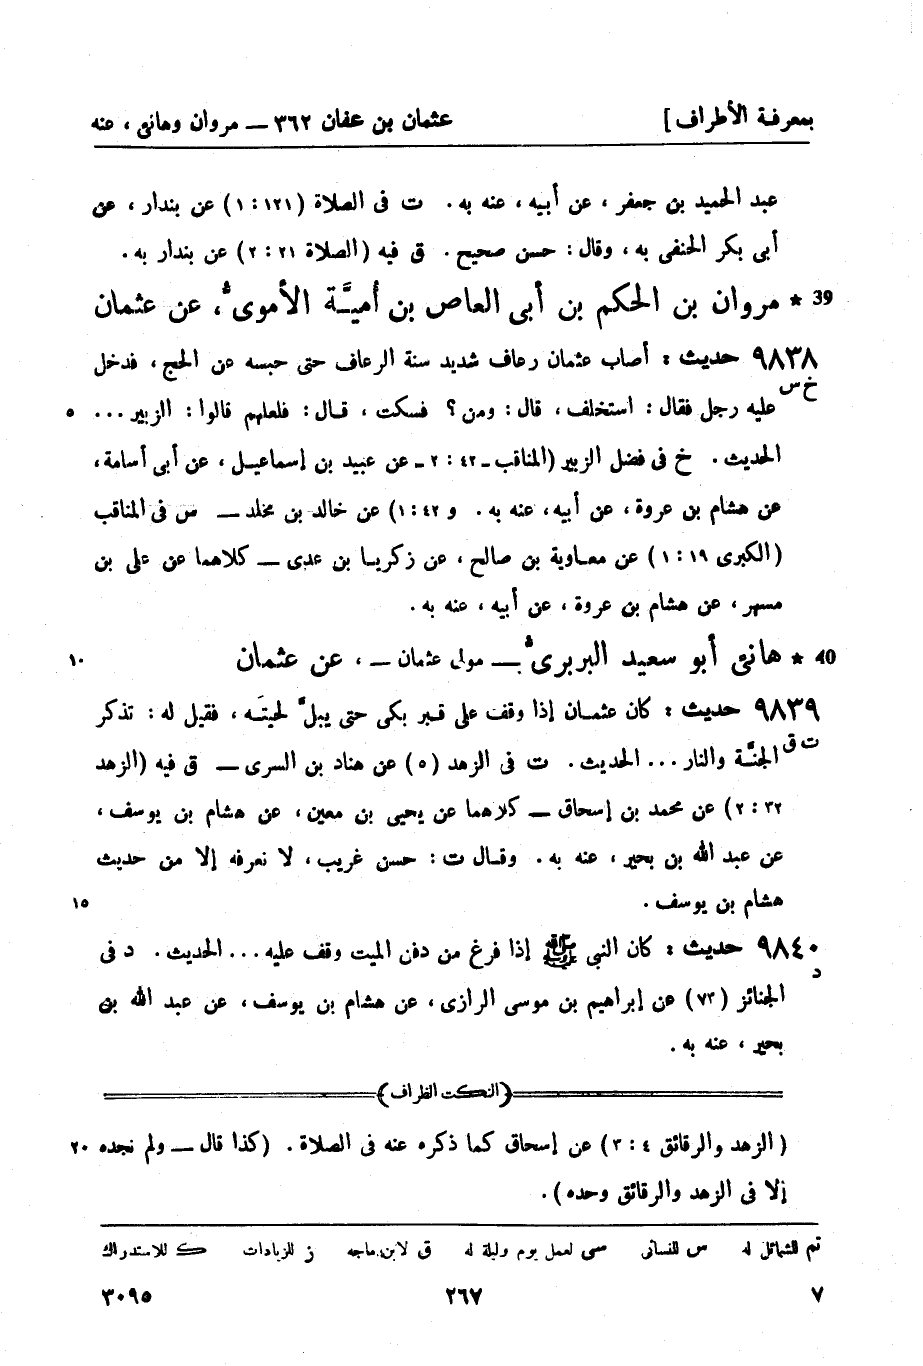 بمعرفة الأطراف] عثمان بن عفان ٣٦٢ — مروان وهانئ ، عنه
عبد الحميد بن جعفر ، عن أبيه ، عنه به . ت فى الصلاة (١٢١ : ١) عن بندار ، عن
أبى بكر الحنفى به ، وقال : حسن صحيح . ق فيه (الصلاة ٢١ : ٢) عن بندار به .
39 * مروان بن الحكم بن أبى العاص بن أميَّة الأموى ، عن عثمان
٩٨٣٨ حديث : أصاب عثمان رعاف شديد سنة الرعاف حتى حبسه عن الحج ، فدخل
خ س
عليه رجل فقال : استخلف ، قال : ومن ؟ فسكت ، قال : فلعلهم قالوا : الزبير ... ٥
الحديث . خ فى فضل الزبير (المناقب ـ ٤٢ : ٢ ـ عن عبيد بن إسماعيل ، عن أبى أسامة ،
عن هشام بن عروة ، عن أبيه ، عنه به . و ٤٢ : ١) عن خالد بن مخلد — س فى المناقب
(الكبرى ١٩ : ١) عن معاوية بن صالح ، عن زكريا بن عدى — كلاهما عن على بن
مسهر ، عن هشام بن عروة ، عن أبيه ، عنه به .
40 * هانئ أبو سعيد البربرى — مولى عثمان — ، عن عثمان ١٠
٩٨٣٩ حديث : كان عثمان إذا وقف على قبر بكى حتى يبل لحيتَه ، فقيل له : تذكر
ت ق
الجنَّة والنار ... الحديث . ت فى الزهد (٥) عن هناد بن السرى — ق فيه (الزهد
٣٢ : ٢) عن محمد بن إسحاق — كلاهما عن يحيى بن معين ، عن هشام بن يوسف ،
عن عبد الله بن بحير ، عنه به . وقال ت : حسن غريب ، لا نعرفه إلا من حديث
هشام بن يوسف . ١٥
٩٨٤٠ حديث : كان النبى ﷺ إذا فرغ من دفن الميت وقف عليه ... الحديث . د فى
د
الجنائز (٧٣) عن إبراهيم بن موسى الرازى ، عن هشام بن يوسف ، عن عبد الله بن
بحير ، عنه به .
(النكت الظراف)
( الزهد والرقائق ٤ : ٣) عن إسحاق كما ذكره عنه فى الصلاة . (كذا قال — ولم نجده ٢٠
إلا فى الزهد والرقائق وحده) .
تم للشمائل له س للنسائى سى لعمل يوم وليلة له ق لابن ماجه ز للزيادات ك للاستدراك
٧ ٢٦٧ ٣٠٩٥